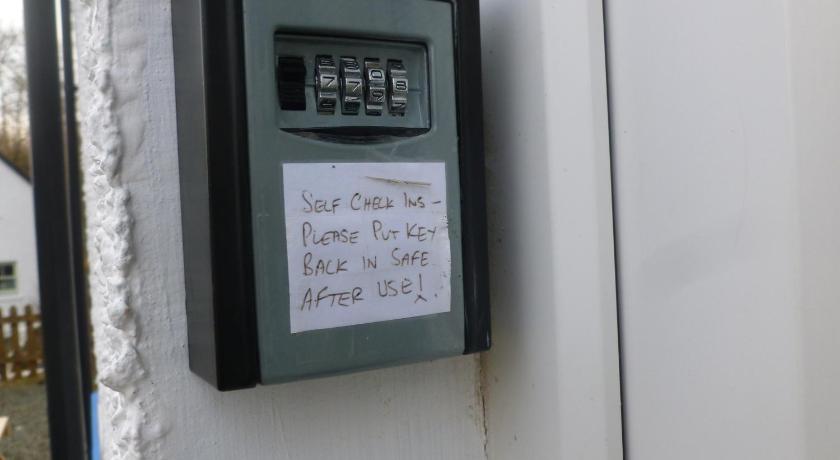 SELF CHECK INS -
PLEASE PUT KEY
BACK IN SAFE
AFTER USE!